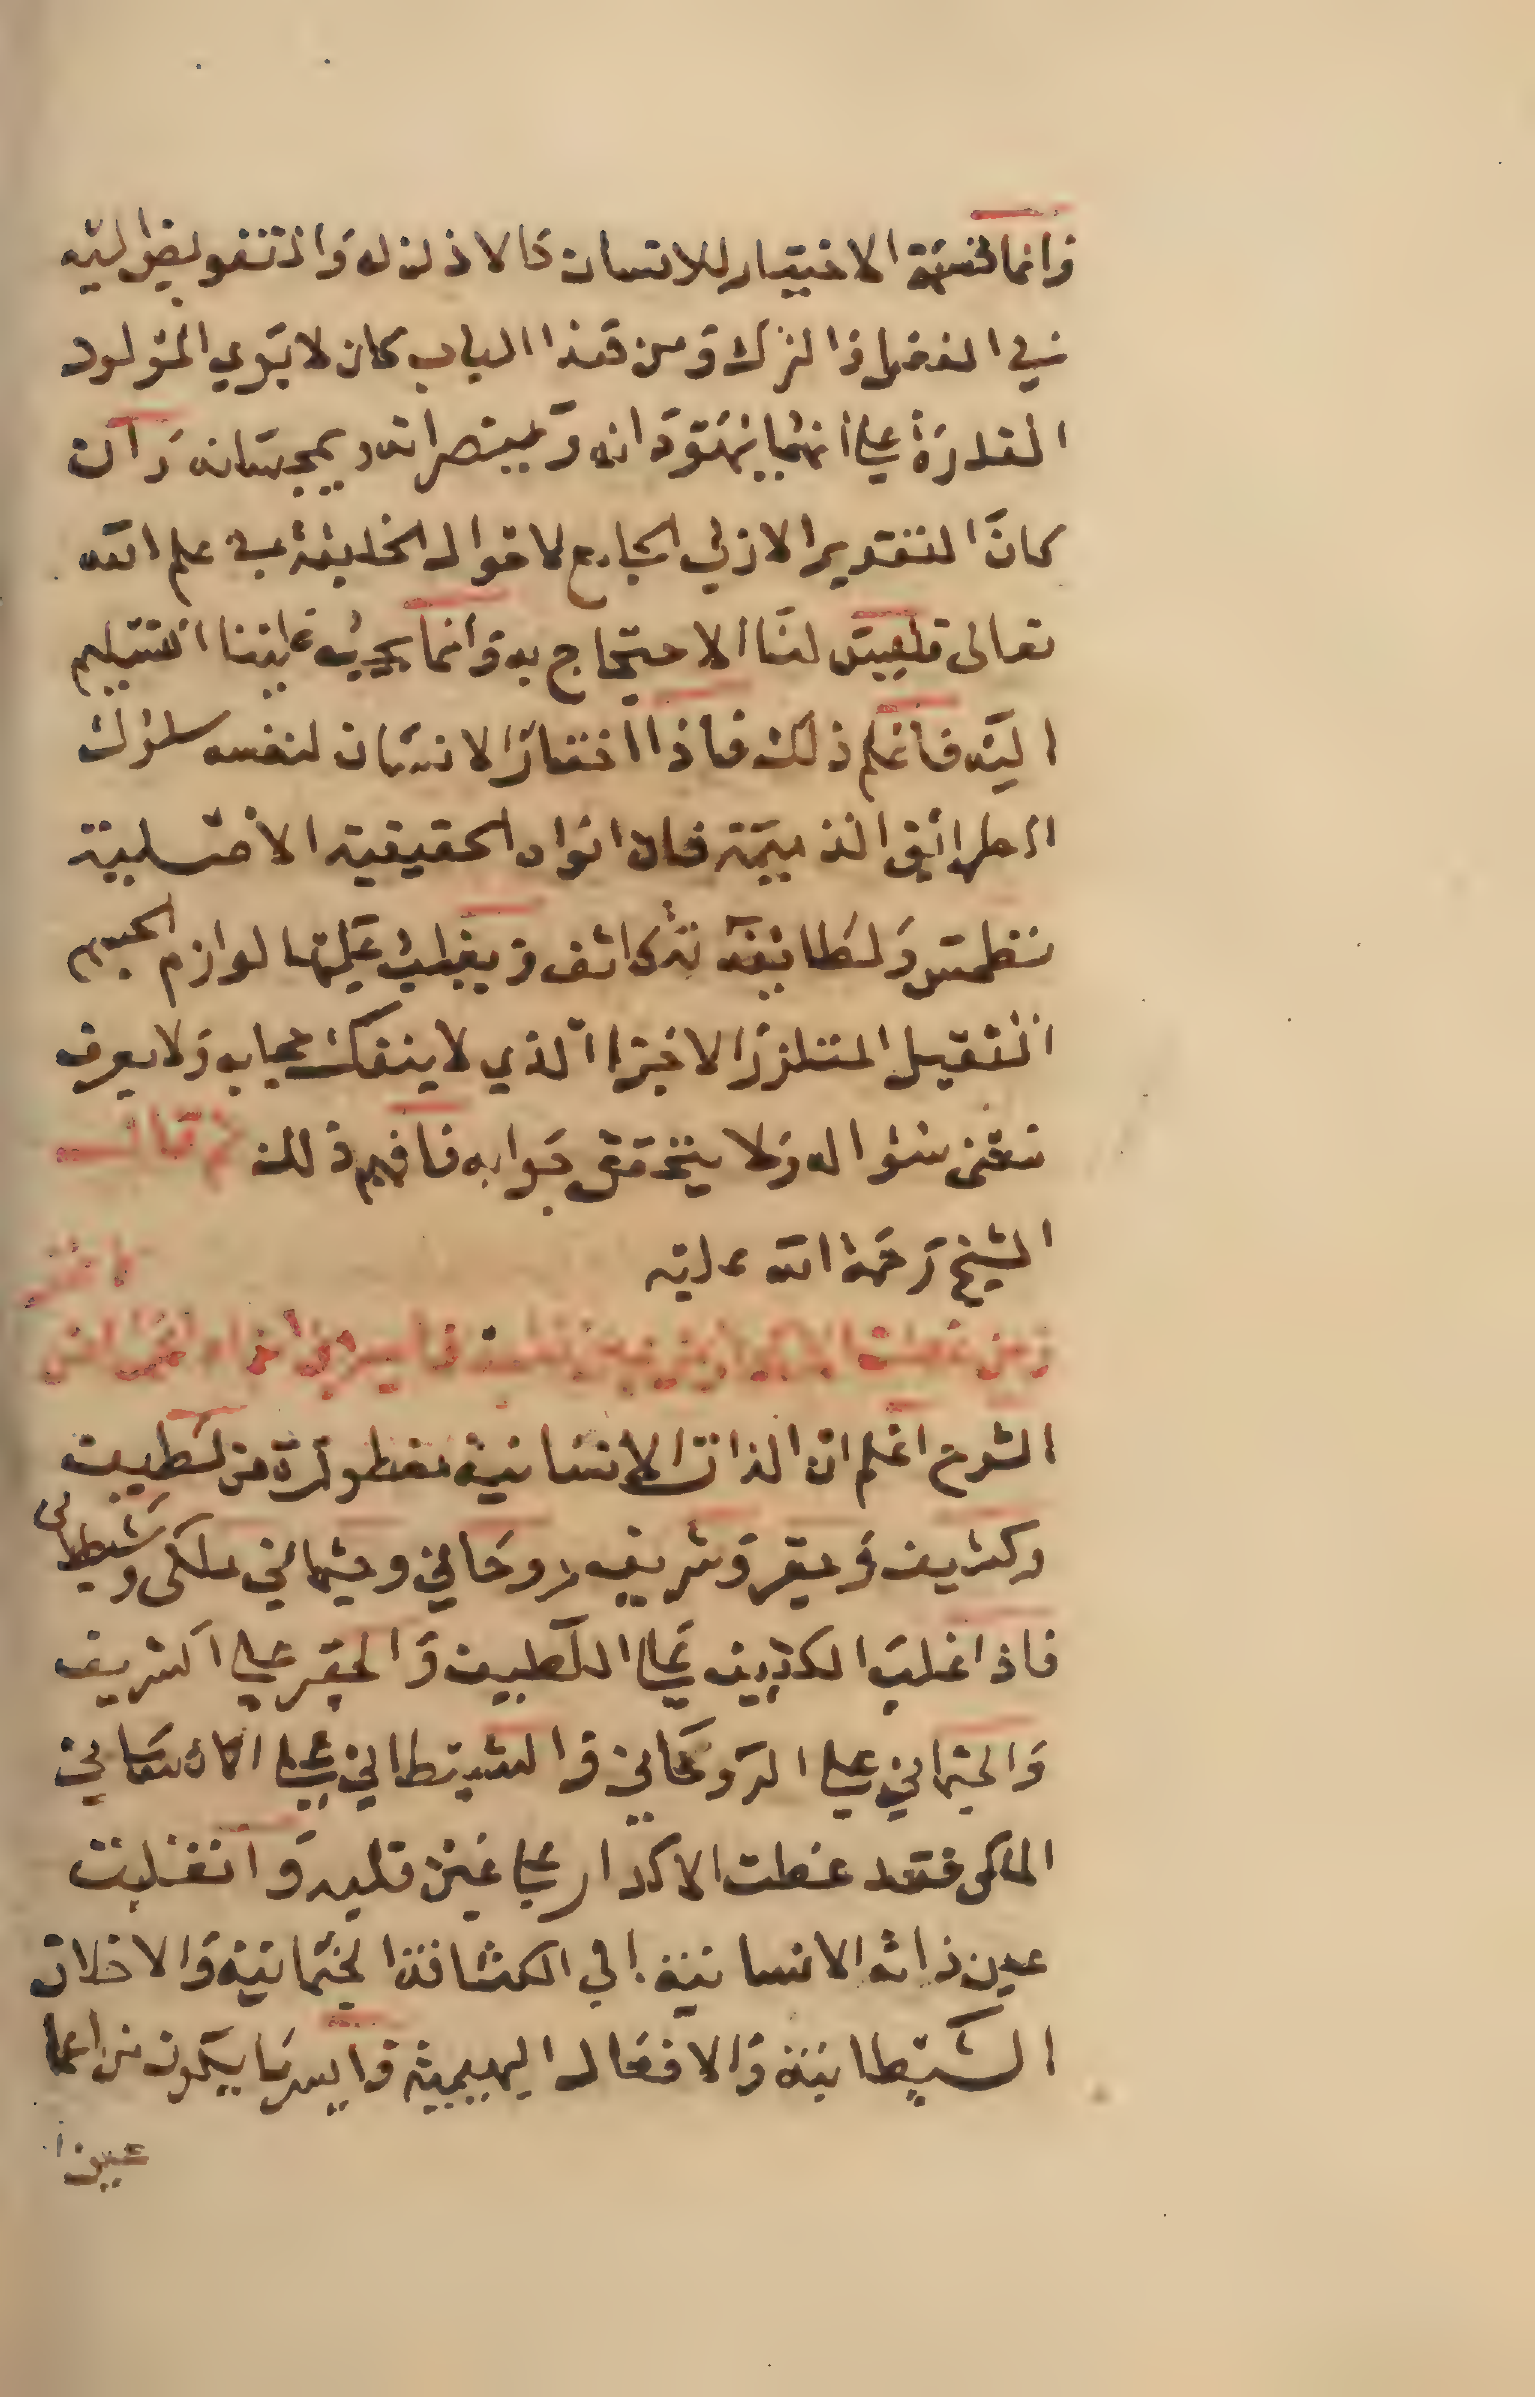 وانما نسبة الاختيار للانسان كالاذن له والتفويض اليه
في الفعل والترك ومن هذا الباب كان لابوي المولود
القدرة على انهما يهودانه وينصرانه ويمجسانه وان
كان التقدير الازلي الجامع لاحوال الخليقة في علم الله
تعالى فليس لنا الاحتجاج به وانما يجب علينا التسليم
اليه فاعلم ذلك فاذا اختار الانسان لنفسه سلوك
الطرائق الذميمة فان انواره الحقيقية الاصلية
تنطمس ولطائفه تتكاثف ويغلب عليها لوازم الجسم
الثقيل المتلزز الاجزا الذي لا ينفك حجابه ولا يعرف
معنى سؤاله ولا يتحقق جوابه فافهم ذلك ثم قال
الشيخ رحمة الله عليه
ومن غطت
الشرح اعلم ان الذات الانسانية مفطورة من لطيف
وكثيف وحقير وشريف روحاني وجثماني ملكي وشيطاني
فاذا غلب الكثيف على اللطيف والحقير على الشريف
والجثماني على الروحاني والشيطاني على الانساني
الملكي فقد غطت الاكدار على عين قلبه وانقلبت
عين ذاته الانسانية الى الكثافة الجثمانية والاخلاق
الشيطانية والافعال البهيمية وايسر ما يكون من اعما
عين